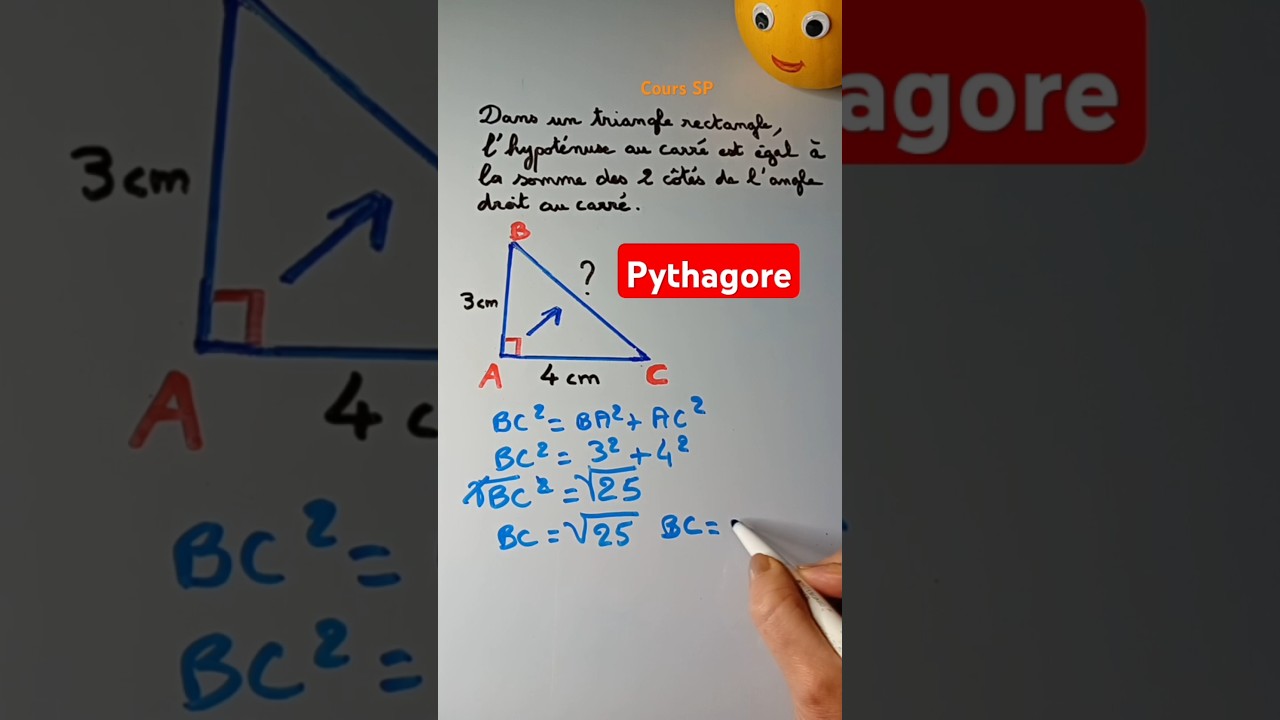 Cours SP
Dans un triangle rectangle,
l'hypoténuse au carré est égal à
la somme des 2 côtés de l'angle
droit au carré.
B
?
Pythagore
3cm
A
4 cm
C
BC² = BA² + AC²
BC² = 3² + 4²
√BC² = √25
BC = √25 BC =
3cm
A
4 c
BC² =
BC² =
agore